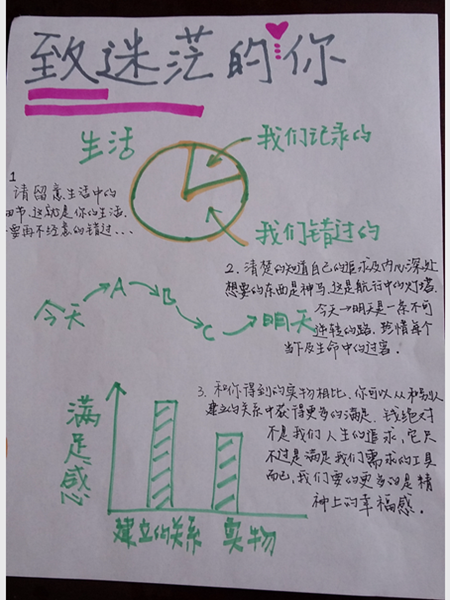 致迷茫的你
生活
我们记录的
我们错过的
1
请留意生活中的
细节,这就是你的生活.
要再不经意的错过...
2. 清楚的知道自己的追求及内心深处
想要的东西是神马.这是航行中的灯塔.
今天→明天是一条不可
逆转的路. 珍惜每个
当下及生命中的过客.
今天
A
B
C
明天
3. 和你得到的实物相比,你可以从和别人
建立的关系中获得更多的满足. 钱绝对
不是我们人生的追求,它只
不过是满足我们需求的工具
而已,我们要的更多的是精
神上的幸福感.
满足感
建立的关系
实物